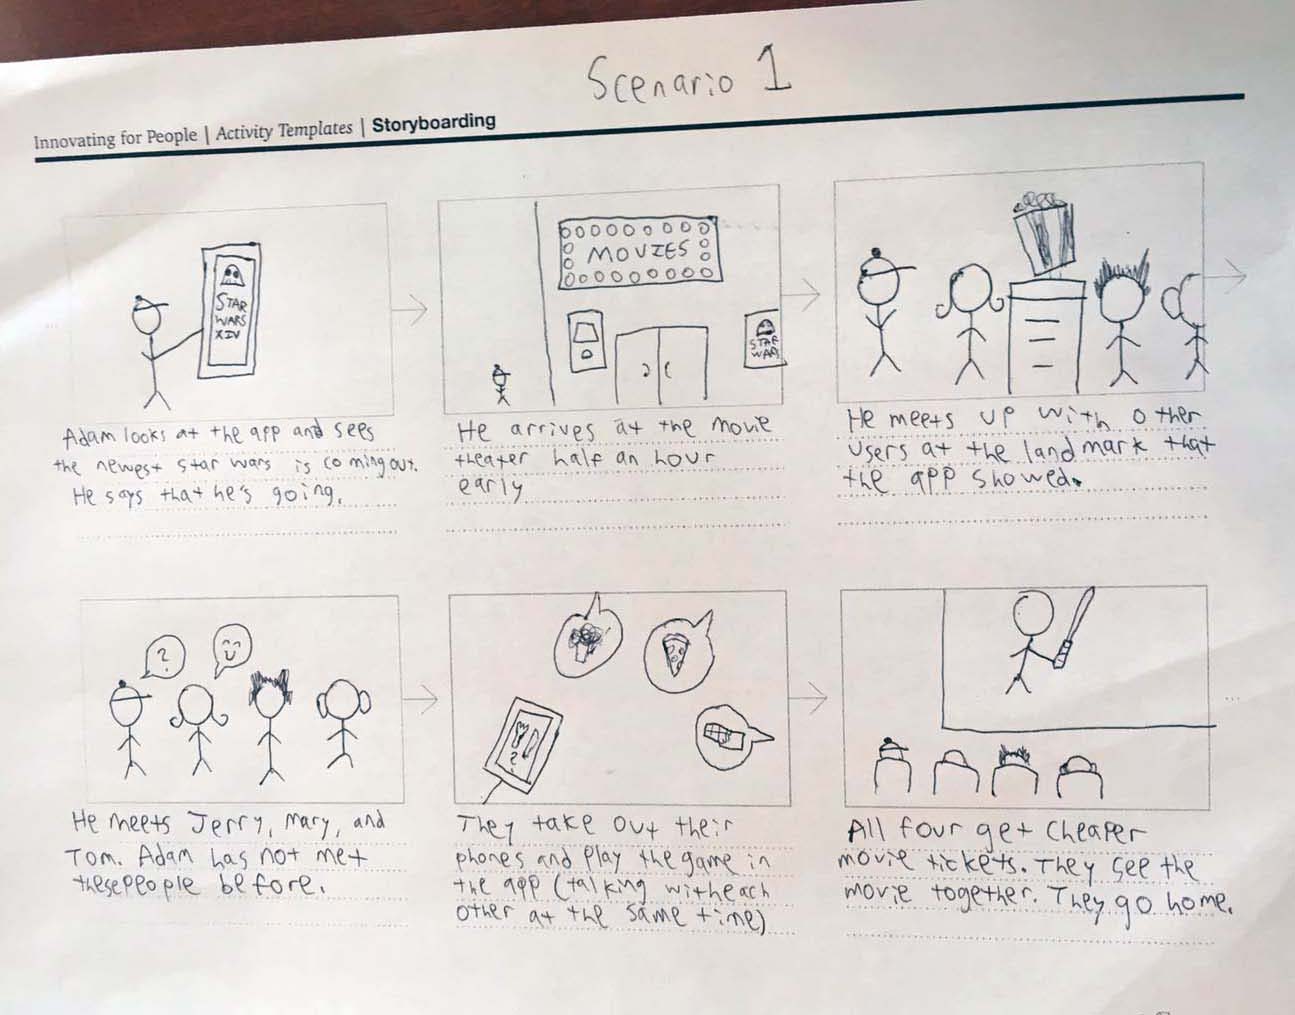 Scenario 1
Innovating for People | Activity Templates | Storyboarding
STAR
WARS
XIV
MOVIES
STAR
WARS
Adam looks at the app and sees
the newest star wars is coming out.
He says that he's going.
He arrives at the movie
theater half an hour
early
He meets up with other
users at the landmark that
the app showed.
?
?
He meets Jerry, Mary, and
Tom. Adam has not met
these people before.
They take out their
phones and play the game in
the app (talking with each
other at the same time)
All four get cheaper
movie tickets. They see the
movie together. They go home.